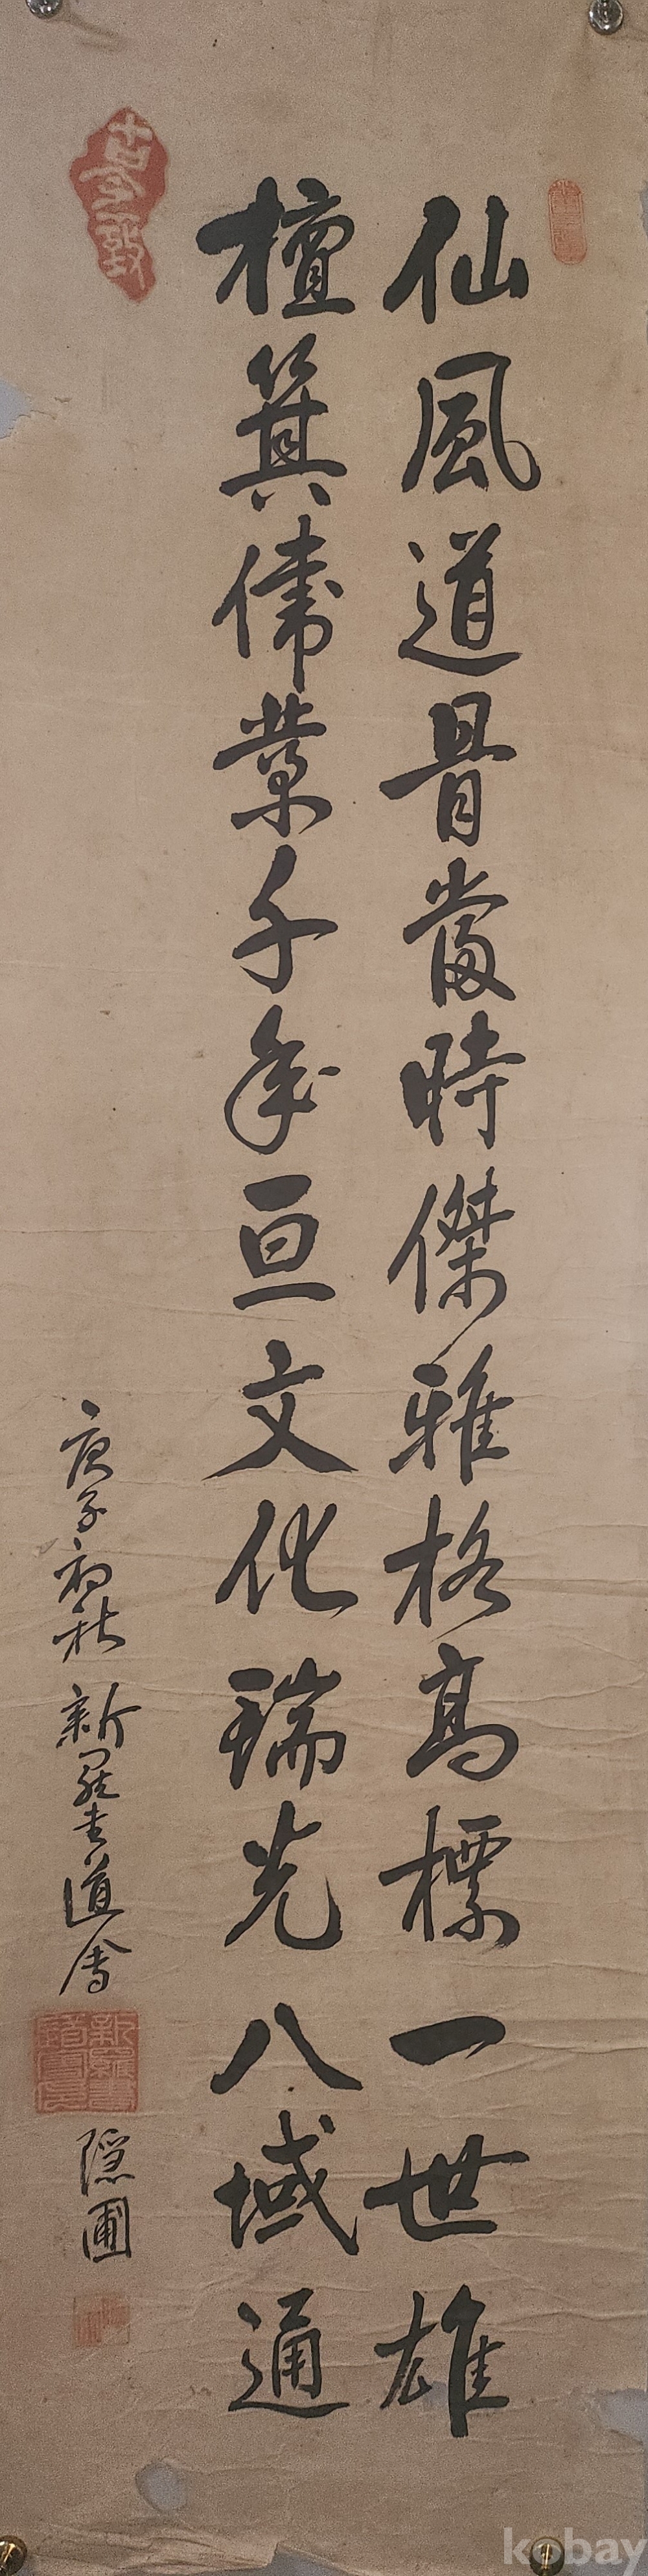 仙風道骨當時傑雅格高標一世雄
檀箕偉業千年亘文化瑞光八域通
庚子初秋 新羅書道會
隱圃
kobay